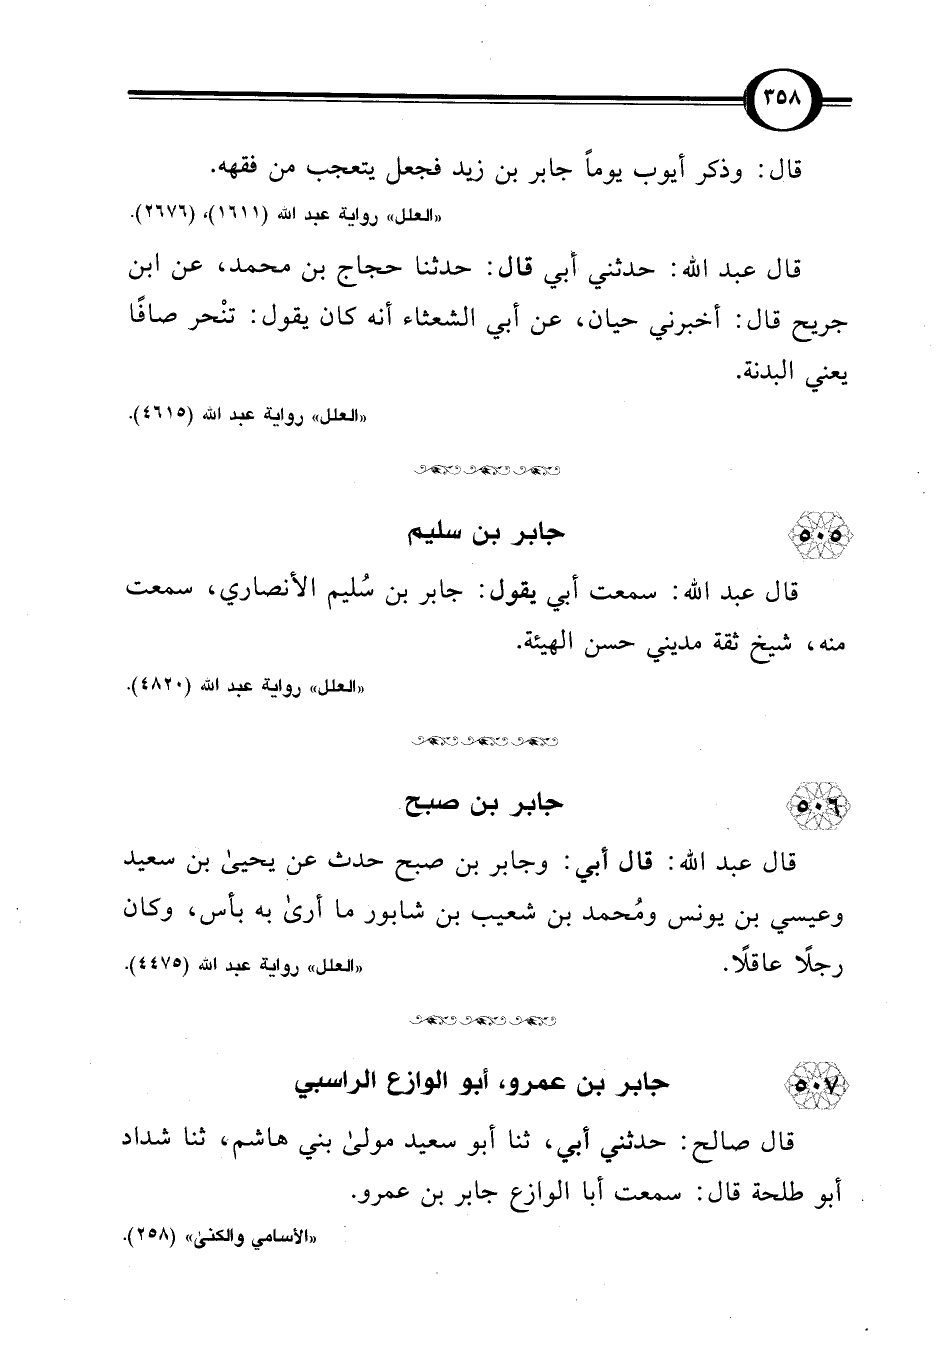 ٣٥٨
قال: وذكر أيوب يوماً جابر بن زيد فجعل يتعجب من فقهه.
«العلل» رواية عبد الله (١٦١١)، (٢٦٧٦).
قال عبد الله: حدثني أبي قال: حدثنا حجاج بن محمد، عن ابن
جريح قال: أخبرني حيان، عن أبي الشعثاء أنه كان يقول: تنْحر صافًا
يعني البدنة.
«العلل» رواية عبد الله (٤٦١٥).
٥٠٥ جابر بن سليم
قال عبد الله: سمعت أبي يقول: جابر بن سُليم الأنصاري، سمعت
منه، شيخ ثقة مديني حسن الهيئة.
«العلل» رواية عبد الله (٤٨٢٠).
٥٠٦ جابر بن صبح
قال عبد الله: قال أبي: وجابر بن صبح حدث عن يحيىٰ بن سعيد
وعيسي بن يونس ومُحمد بن شعيب بن شابور ما أرىٰ به بأس، وكان
رجلًا عاقلًا. «العلل» رواية عبد الله (٤٤٧٥).
٥٠٧ جابر بن عمرو، أبو الوازع الراسبي
قال صالح: حدثني أبي، ثنا أبو سعيد مولىٰ بني هاشم، ثنا شداد
أبو طلحة قال: سمعت أبا الوازع جابر بن عمرو.
«الأسامي والكنىٰ» (٢٥٨).